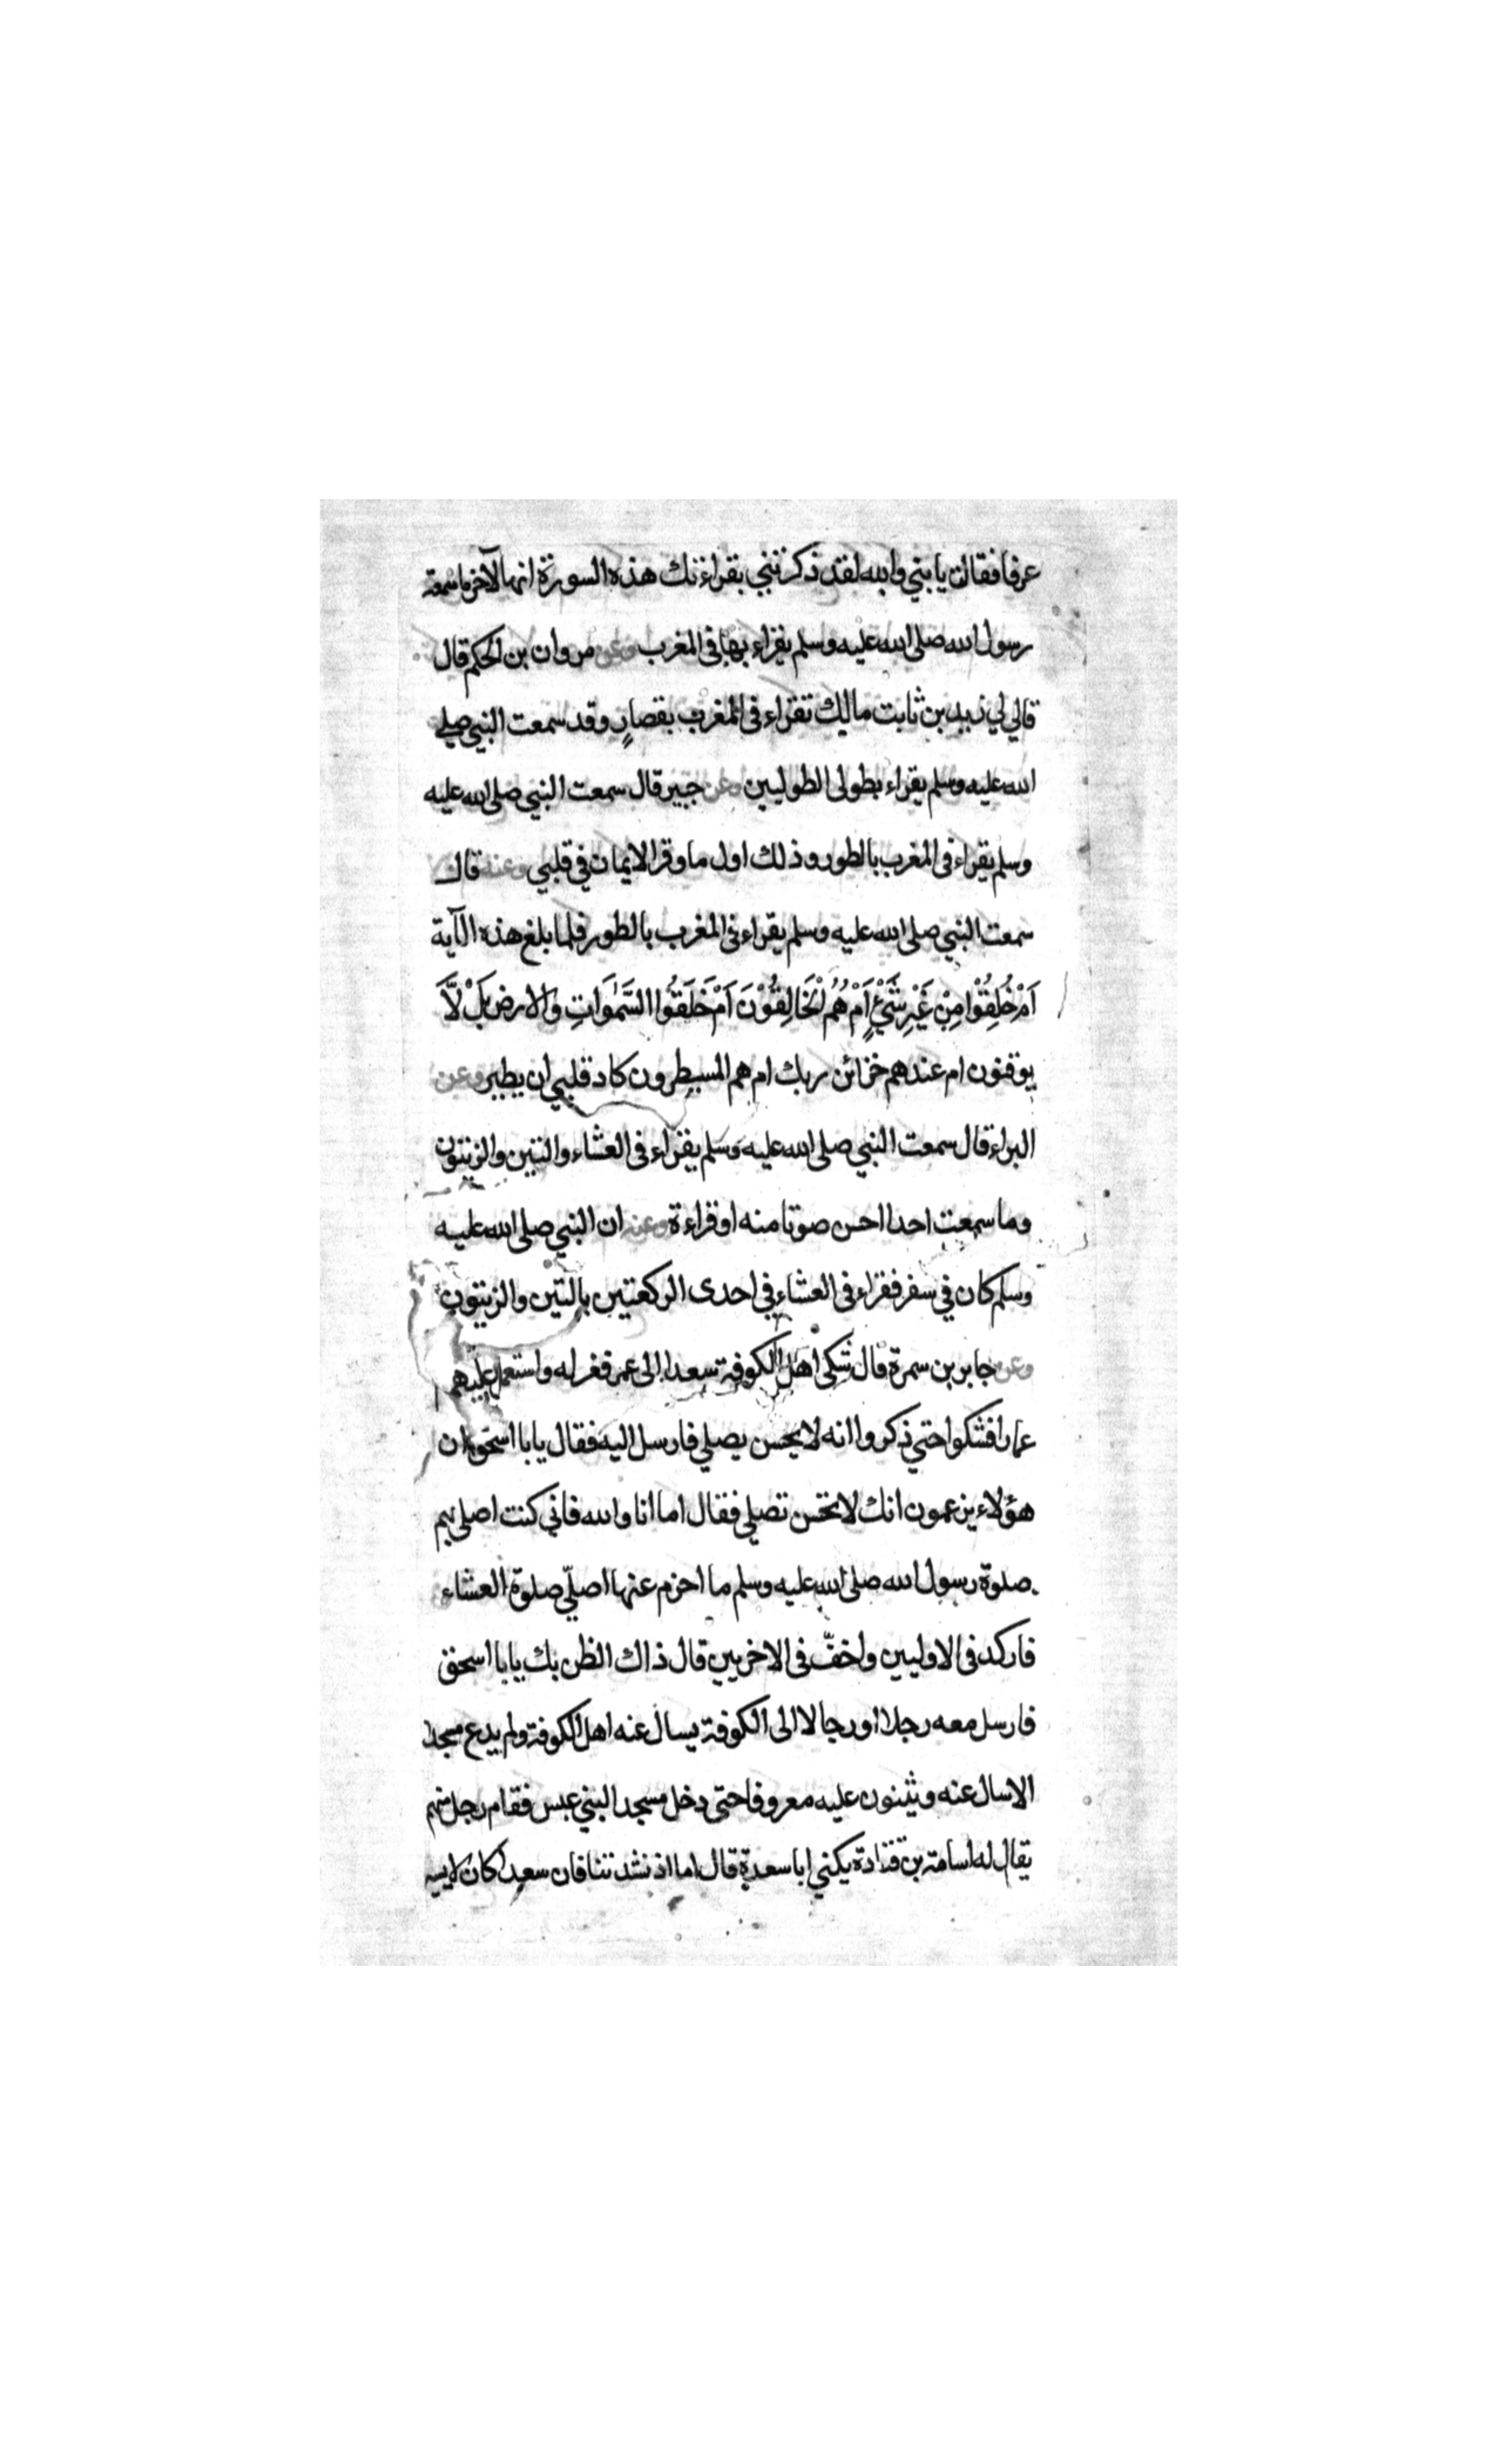 عرفا فقالت يا بني والله لقد ذكرتني بقراءتك هذه السورة انها لآخر ما سمعته
رسول الله صلى الله عليه وسلم يقراء بها في المغرب وعن مروان بن الحكم قال
قال لي زيد بن ثابت مالك تقراء في المغرب بقصارٍ وقد سمعت النبي صلى
الله عليه وسلم يقراء بطولى الطوليين وعن جبير قال سمعت النبي صلى الله عليه
وسلم يقراء في المغرب بالطور وذلك اول ما وقر الايمان في قلبي وعنه قال
سمعت النبي صلى الله عليه وسلم يقراء في المغرب بالطور فلما بلغ هذه الآية
اَمْ خُلِقُوْا مِنْ غَيْرِ شَيْءٍ اَمْ هُمُ الْخَالِقُوْنَ اَمْ خَلَقُوا السَّمٰوَاتِ وَالارض بَلْ لَّا
يوقنون ام عندهم خزائن ربك ام هم المسيطرون كاد قلبي ان يطير وعن
البراء قال سمعت النبي صلى الله عليه وسلم يقراء في العشاء والتين والزيتون
وما سمعت احدا احسن صوتا منه او قراءة وعنه ان النبي صلى الله عليه
وسلم كان في سفر فقراء في العشاء في احدى الركعتين بالتين والزيتون
وعن جابر بن سمرة قال شكى اهل الكوفة سعدا الى عمر فعزله واستعمل عليهم
عمارا فشكوا حتي ذكروا انه لا يحسن يصلي فارسل اليه فقال يابا اسحق ان
هؤلاء يزعمون انك لا تحسن تصلي فقال اما انا والله فاني كنت اصلى بهم
صلوة رسول الله صلى الله عليه وسلم ما اخرم عنها اصلّي صلوة العشاء
فاركد في الاوليين واخفّ في الاخريين قال ذاك الظن بك يابا اسحق
فارسل معه رجلا او رجالا الى الكوفة يسال عنه اهل الكوفة ولم يدع مسجدا
الا سال عنه ويثنون عليه معروفا حتى دخل مسجد البني عبس فقام رجل منهم
يقال له اسامة بن قتادة يكني ابا سعدة قال اما اذ نشدتنا فان سعدا كان لا يسير